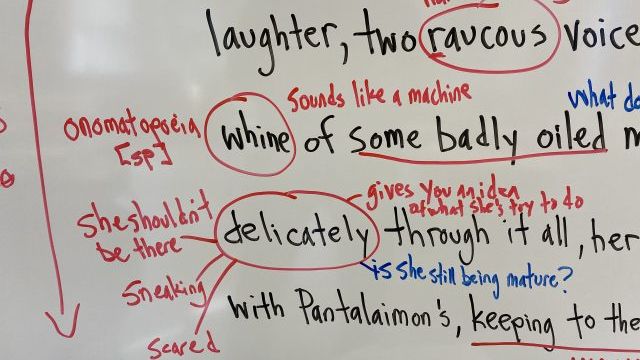 laughter, two raucous voice
sounds like a machine
what do
onomatopoeia
[sp]
whine of some badly oiled m
gives you an idea
of what she's try to do
she shouldn't
be there
delicately through it all, her
is she still being mature?
sneaking
with Pantalaimon's, keeping to the
scared